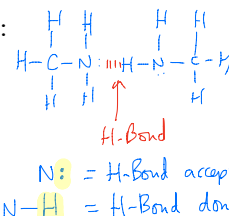 :
H H H H
H-C-N: ıııı H-N-C-H
H H : H
H-Bond
N: = H-Bond accep
N-H = H-Bond don